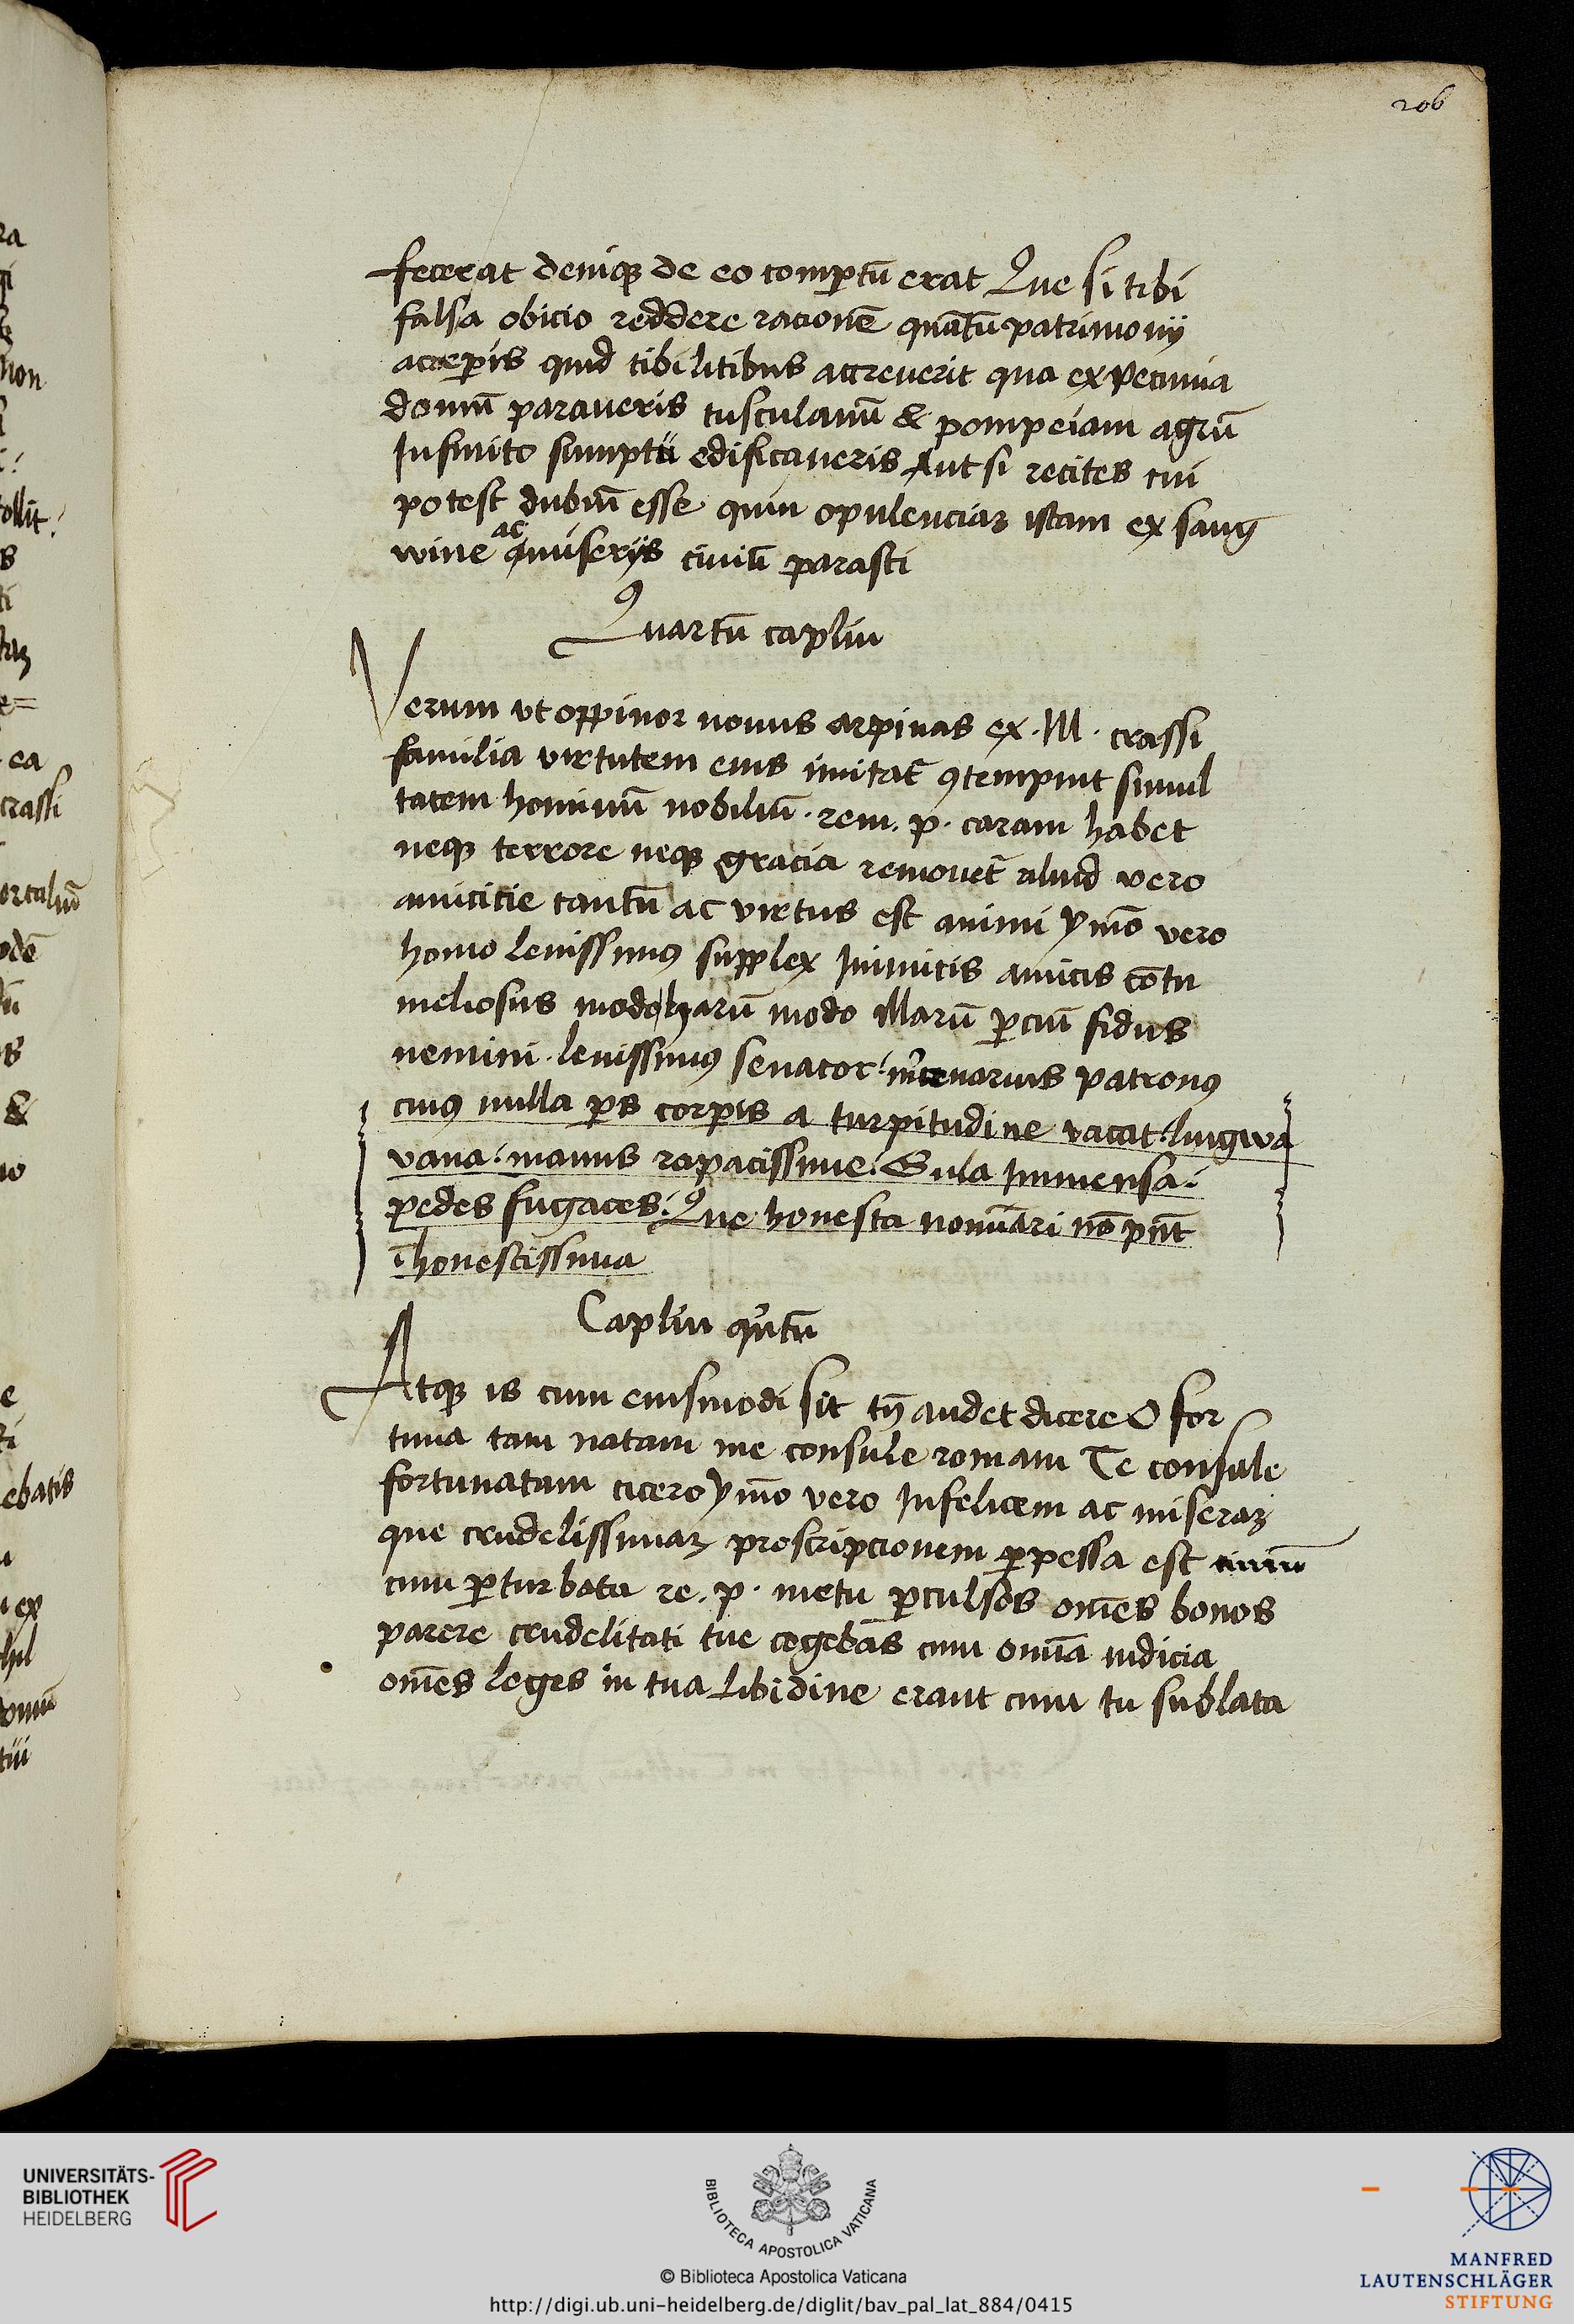 206
fecerat deniqꝫ de eo comptū erat Que si tibi
falsa obicio reddere racionē quātū patrimonij
acceꝑis quid tibi litibus accreuerit qua ex pecunia
domū paraueris tusculanū & pompeiam agrū
Infinito sumptu edificaueris Aut si recites cui
potest dubiū esse quin opulenciaꝫ istam ex sang
wine ac miserijs ciuiū parasti
Quartū caplm
Verum vt oppinor nouus arpinas ex · M · crassi
familia virtutem eius imitat᷑ ꝯtempnit simul
tatem hominū nobiliū · rem · p · caram habet
neqꝫ terrore neqꝫ gracia remouet᷑ aliud vero
amicicie tantū ac virtus est animi ymō vero
homo leuissimꝯ supplex Inimicis amicis cōtu
meliosus modo harū modo illarū ꝑciū fidus
nemini · leuissimꝯ senator · mercenarius patronꝯ
cuiꝯ nulla ꝑs corpis a turpitudine vacat · lingwa
vana · manus rapacissime · Gula Immensa ·
pedes fugaces · Que honesta nomīari nō pnt
ī honestissima
Caplm quītū
Atqꝫ is cum eiusmodi sit tn̄ audet dicere O for
tuna tam natam me consule romam Te consule
fortunatam cicero ymō vero Infelicem ac miseraꝫ
que crudelissimaꝫ proscripcionem ꝑpessa est ciuiū
cum ꝑturbata re · p · metu ꝑculsos om̄es bonos
parere crudelitati tue cogebas cum om̄ia iudicia
om̄es leges in tua libidine erant cum tu sublata
UNIVERSITÄTS-
BIBLIOTHEK
HEIDELBERG
BIBLIOTECA APOSTOLICA VATICANA
© Biblioteca Apostolica Vaticana
http://digi.ub.uni-heidelberg.de/diglit/bav_pal_lat_884/0415
MANFRED
LAUTENSCHLÄGER
STIFTUNG